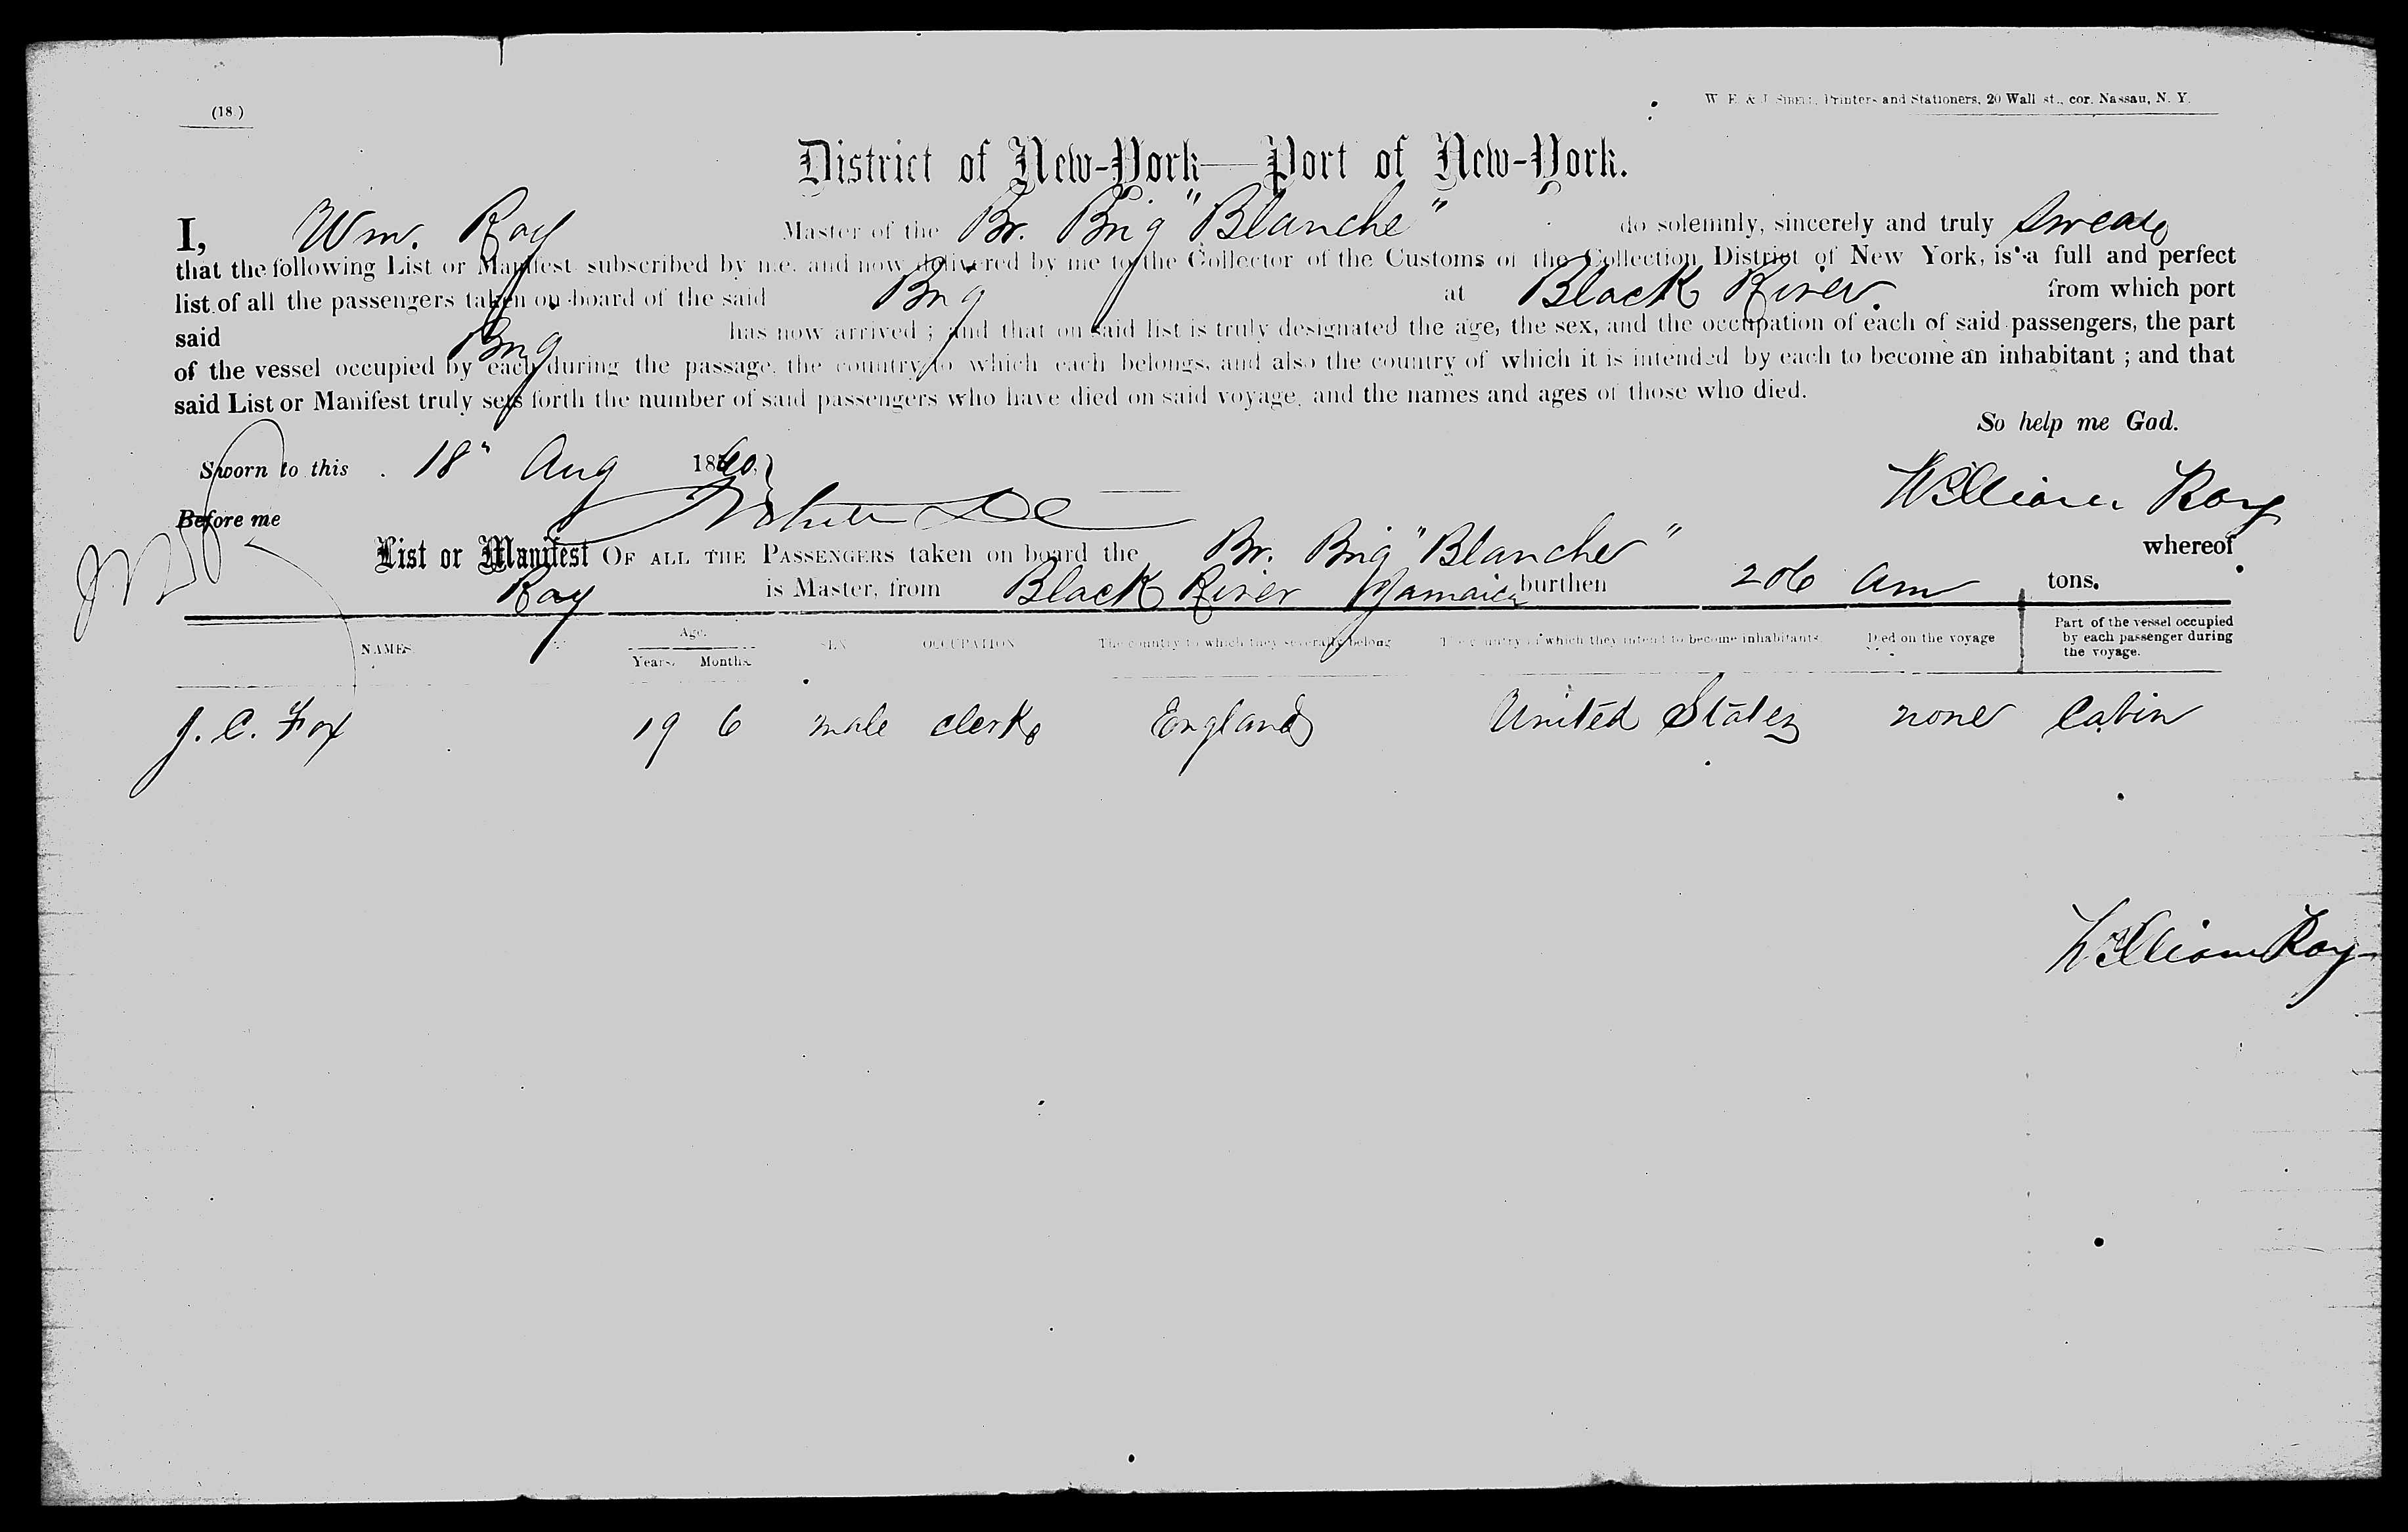 (18)
W. E. & J. SIBELL, Printers and Stationers, 20 Wall st., cor. Nassau, N. Y.
District of New-York—Port of New-York.
I, Wm. Roy Master of the Br. Brig "Blanche" do solemnly, sincerely and truly swear
that the following List or Manifest subscribed by me, and now delivered by me to the Collector of the Customs of the Collection District of New York, is a full and perfect
list of all the passengers taken on board of the said Brig at Black River. from which port
said Brig has now arrived ; and that on said list is truly designated the age, the sex, and the occupation of each of said passengers, the part
of the vessel occupied by each during the passage, the country to which each belongs, and also the country of which it is intended by each to become an inhabitant ; and that
said List or Manifest truly sets forth the number of said passengers who have died on said voyage, and the names and ages of those who died.
So help me God.
Sworn to this 18" Aug 1860,
William Roy
Before me
List or Manifest OF ALL THE PASSENGERS taken on board the Br. Brig "Blanche" whereof
Roy is Master, from Black River Jamaica burthen 206 am tons.
NAMES Age. Years. Months. SEX OCCUPATION The country to which they severally belong The country of which they intend to become inhabitants. Died on the voyage Part of the vessel occupied by each passenger during the voyage.
J. C. Fox 19 6 male clerk England United States none Cabin
William Roy